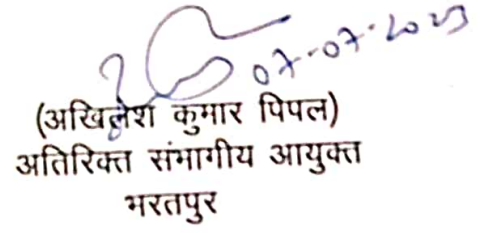 07-07-2023
(अखिलेश कुमार पिपल)
अतिरिक्त संभागीय आयुक्त
भरतपुर